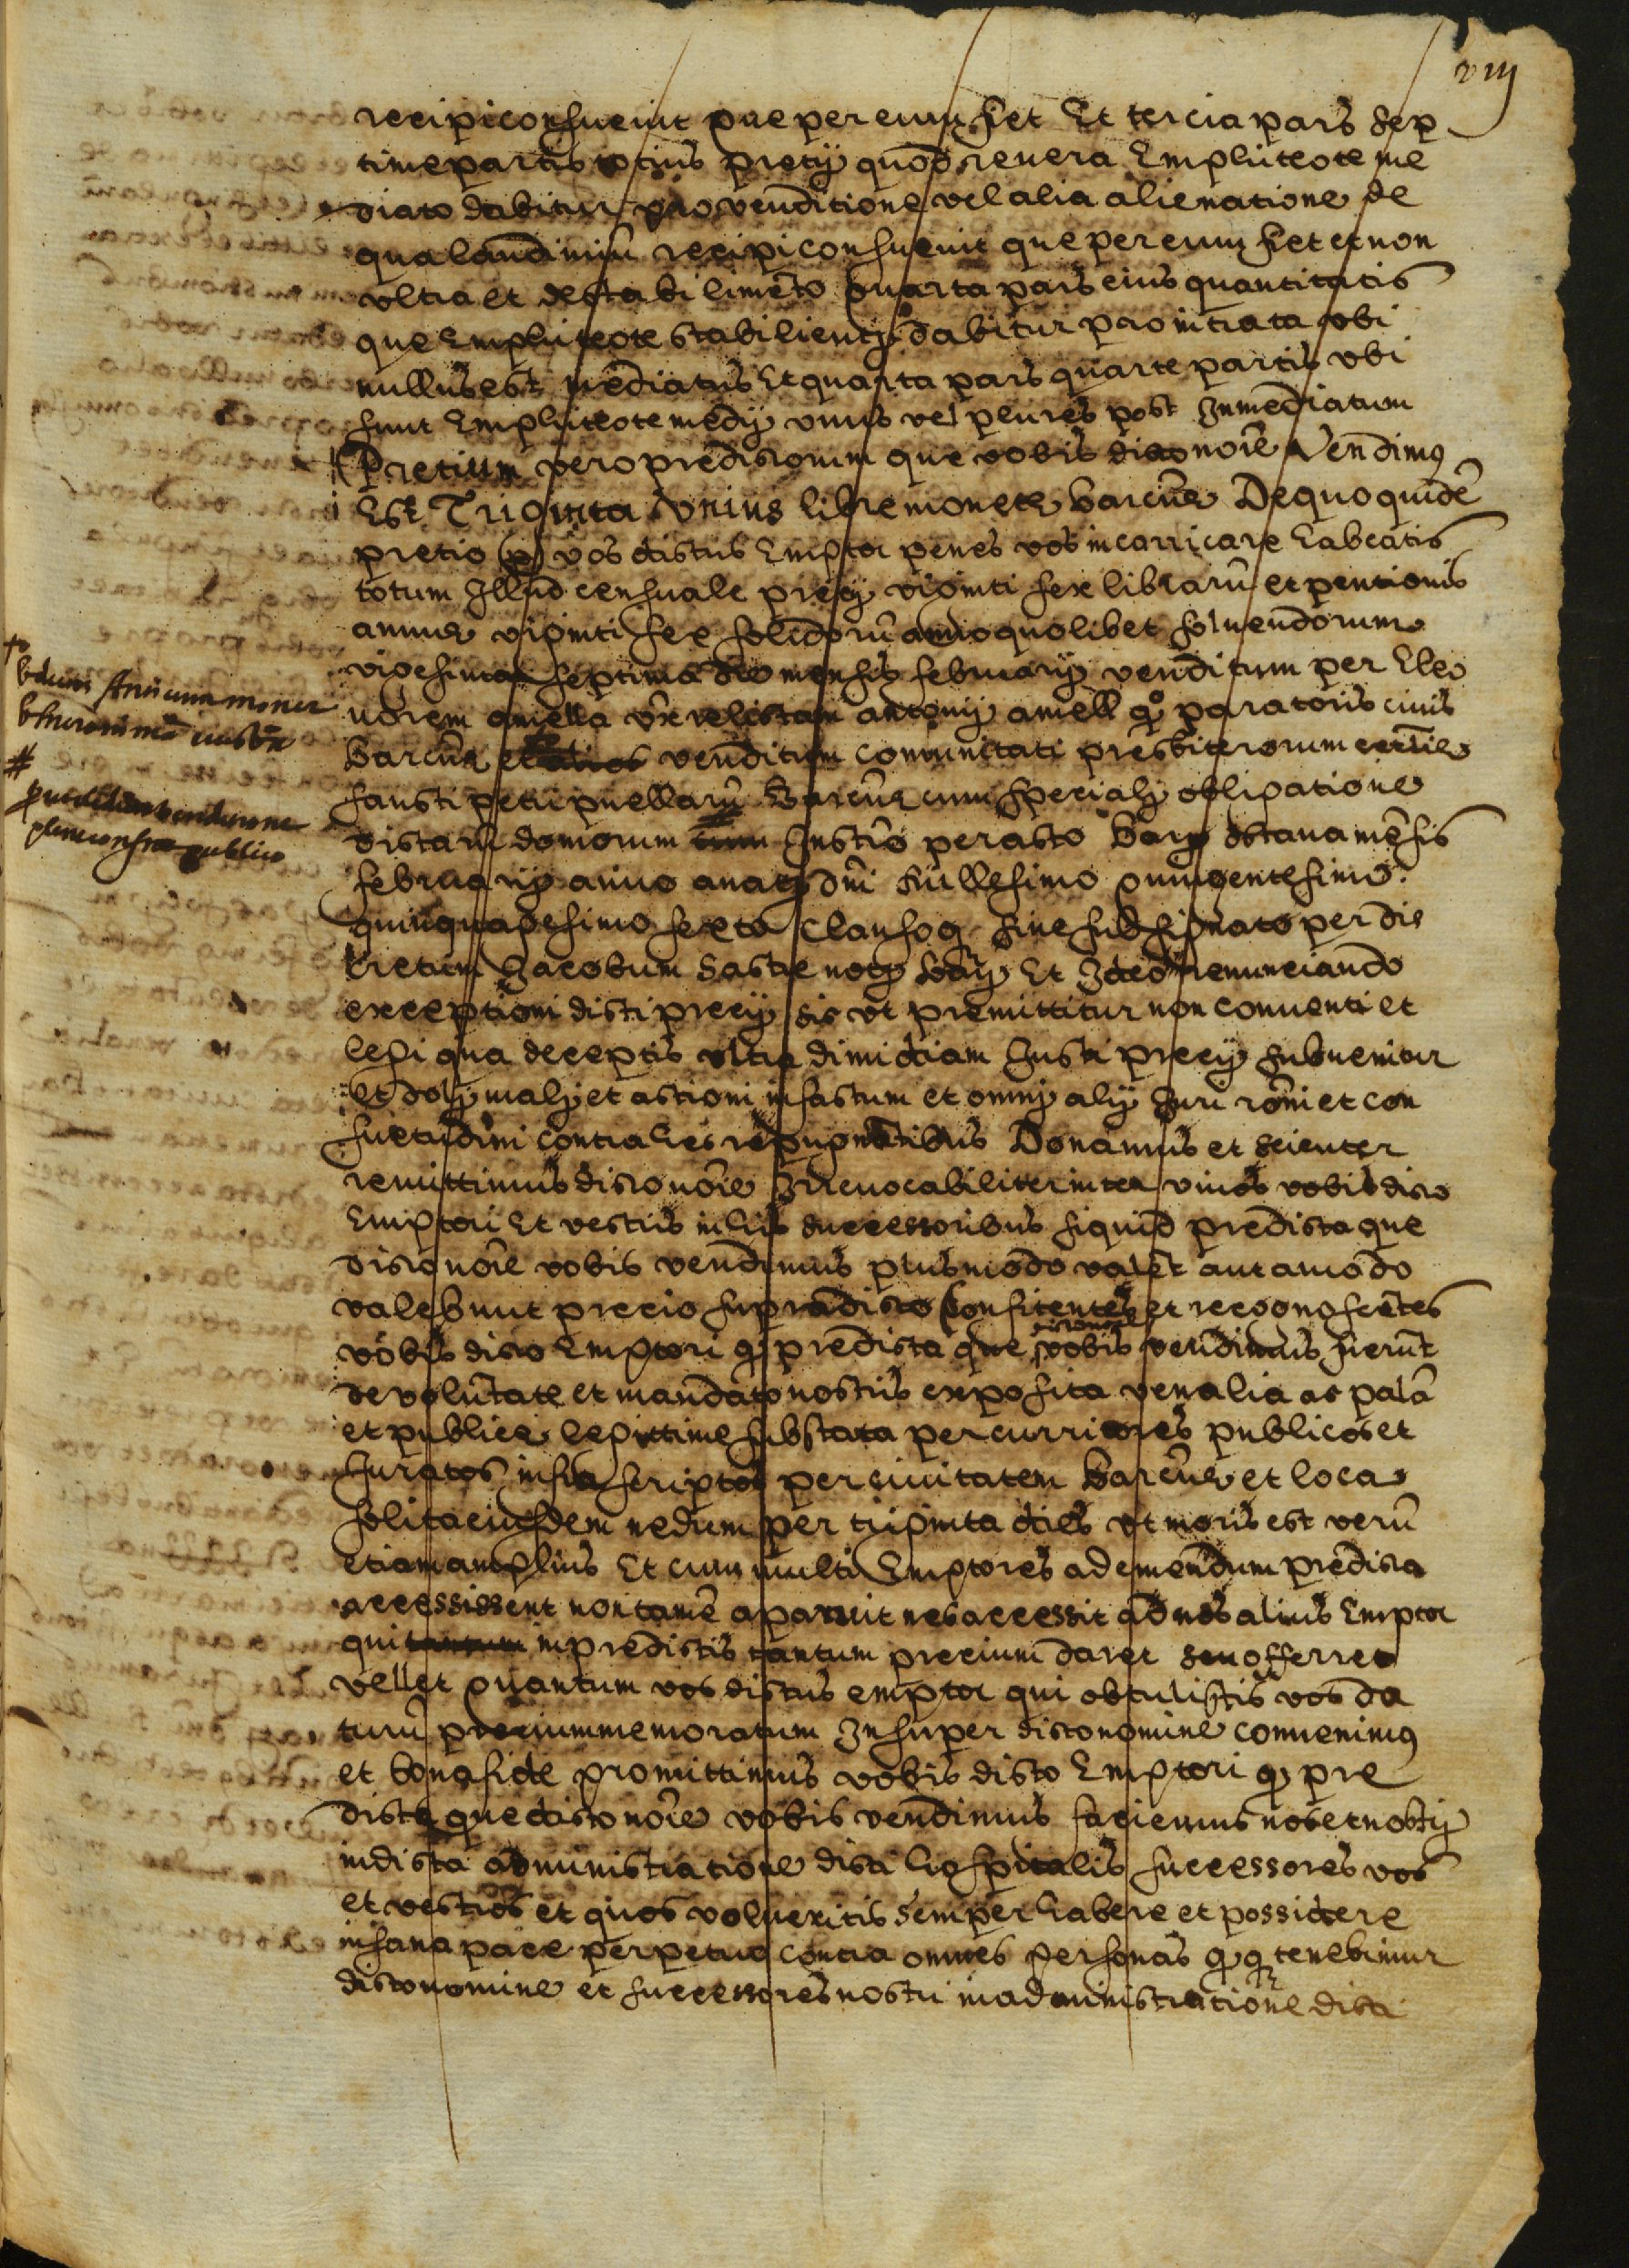 viij
recipi consuevit que per eum fiet Et tercia pars sep
time partis totius pretij quod revera Emphiteote me
diato dabitur pro venditione vel alia alienatione de
qua laudimiũ recipi consuevit que per eum fiet et non
ultra et de stabilimẽto quarta pars eius quantitatis
que Emphiteote stabilienti dabitur pro intrata ubi
nullus est mediatus Et quarta pars quarte partis ubi
sunt Emphiteote medij unus vel plures post Inmediatum
Pretium vero predictorum que vobis dicto noĩe Vendimus
Est Triginta unius libre monete barcñe De quo quidẽ
pretio vos dictus Emptor penes vos incarricare habeatis
totum Illud censuale precij viginti sex librarũ et pentionis
annue viginti sex solidorũ anno quolibet solvendorum
vigesima septima die mensis februarij venditum per Eleo
norem amella uxẽ relictam antonij amell qº paratoris civis
barcñe venditum comunitati presbiterorum ecclie
sancti petri puellarũ Barcñe cum speciali obligatione
dictarũ domorum Instrõ peracto barcñ octava mẽsis
februarij anno a natĩ dñi Millesimo quingentesimo
quinquagesimo sexto clausoq sive subsignato per dis
cretum Jacobum Sastre notm barñ Et Ideo renunciando
exceptioni dicti precij sic ut premittitur non conventi et
legi qua deceptis ultra dimidiam Justi precij subvenitur
et doli mali et actioni in factum et omni alij Juri rõni et con
suetudini contra hec repugnãtibus Donamus et scienter
remittimus dicto noĩe Irrevocabiliter inter vivos vobis dicto
Emptori Et vestris in his successoribus siquid predicta que
dicto noĩe vobis vendimus plus modo valẽt aut amodo
valebunt precio supradicto Confitentes et recognoscẽtes
vobis dicto Emptori q predicta que dicto noĩe vobis vendimus fuerũt
de volũtate et mandato nostris exposita venalia ac palã
et publice legittime subhastata per curritores publicos et
Juratos infrascriptos per civitatem Barcñe et loca
solita eiusdem nedum per triginta dies ut moris est verũ
etiam amplius Et cum multi Emptores ad emendum predicta
accessissent non tamẽ aparuit nec accessit ad nos alius Emptor
qui in predictis tantum precium daret seu offerret
vellet quantum vos dictus emptor qui obtulistis vos da
turũ precium memoratum Insuper dicto nomine convenimus
et bona fide promittimus vobis dicto Emptori q pre
dicta que dicto noĩe vobis vendimus faciemus nos et nostri
in dicta administratione dicti hospitalis successores vos
et vestros et quos volueritis semper habere et possidere
in sana pace perpetuo contra omnes personas q q tenebimur
dicto nomine et successores nostri in administratione dicti